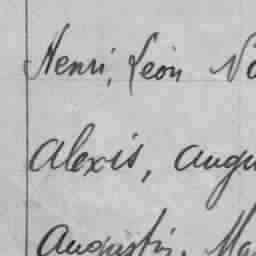 Henri, Léon No
Alexis, Augu
Augustin, Ma